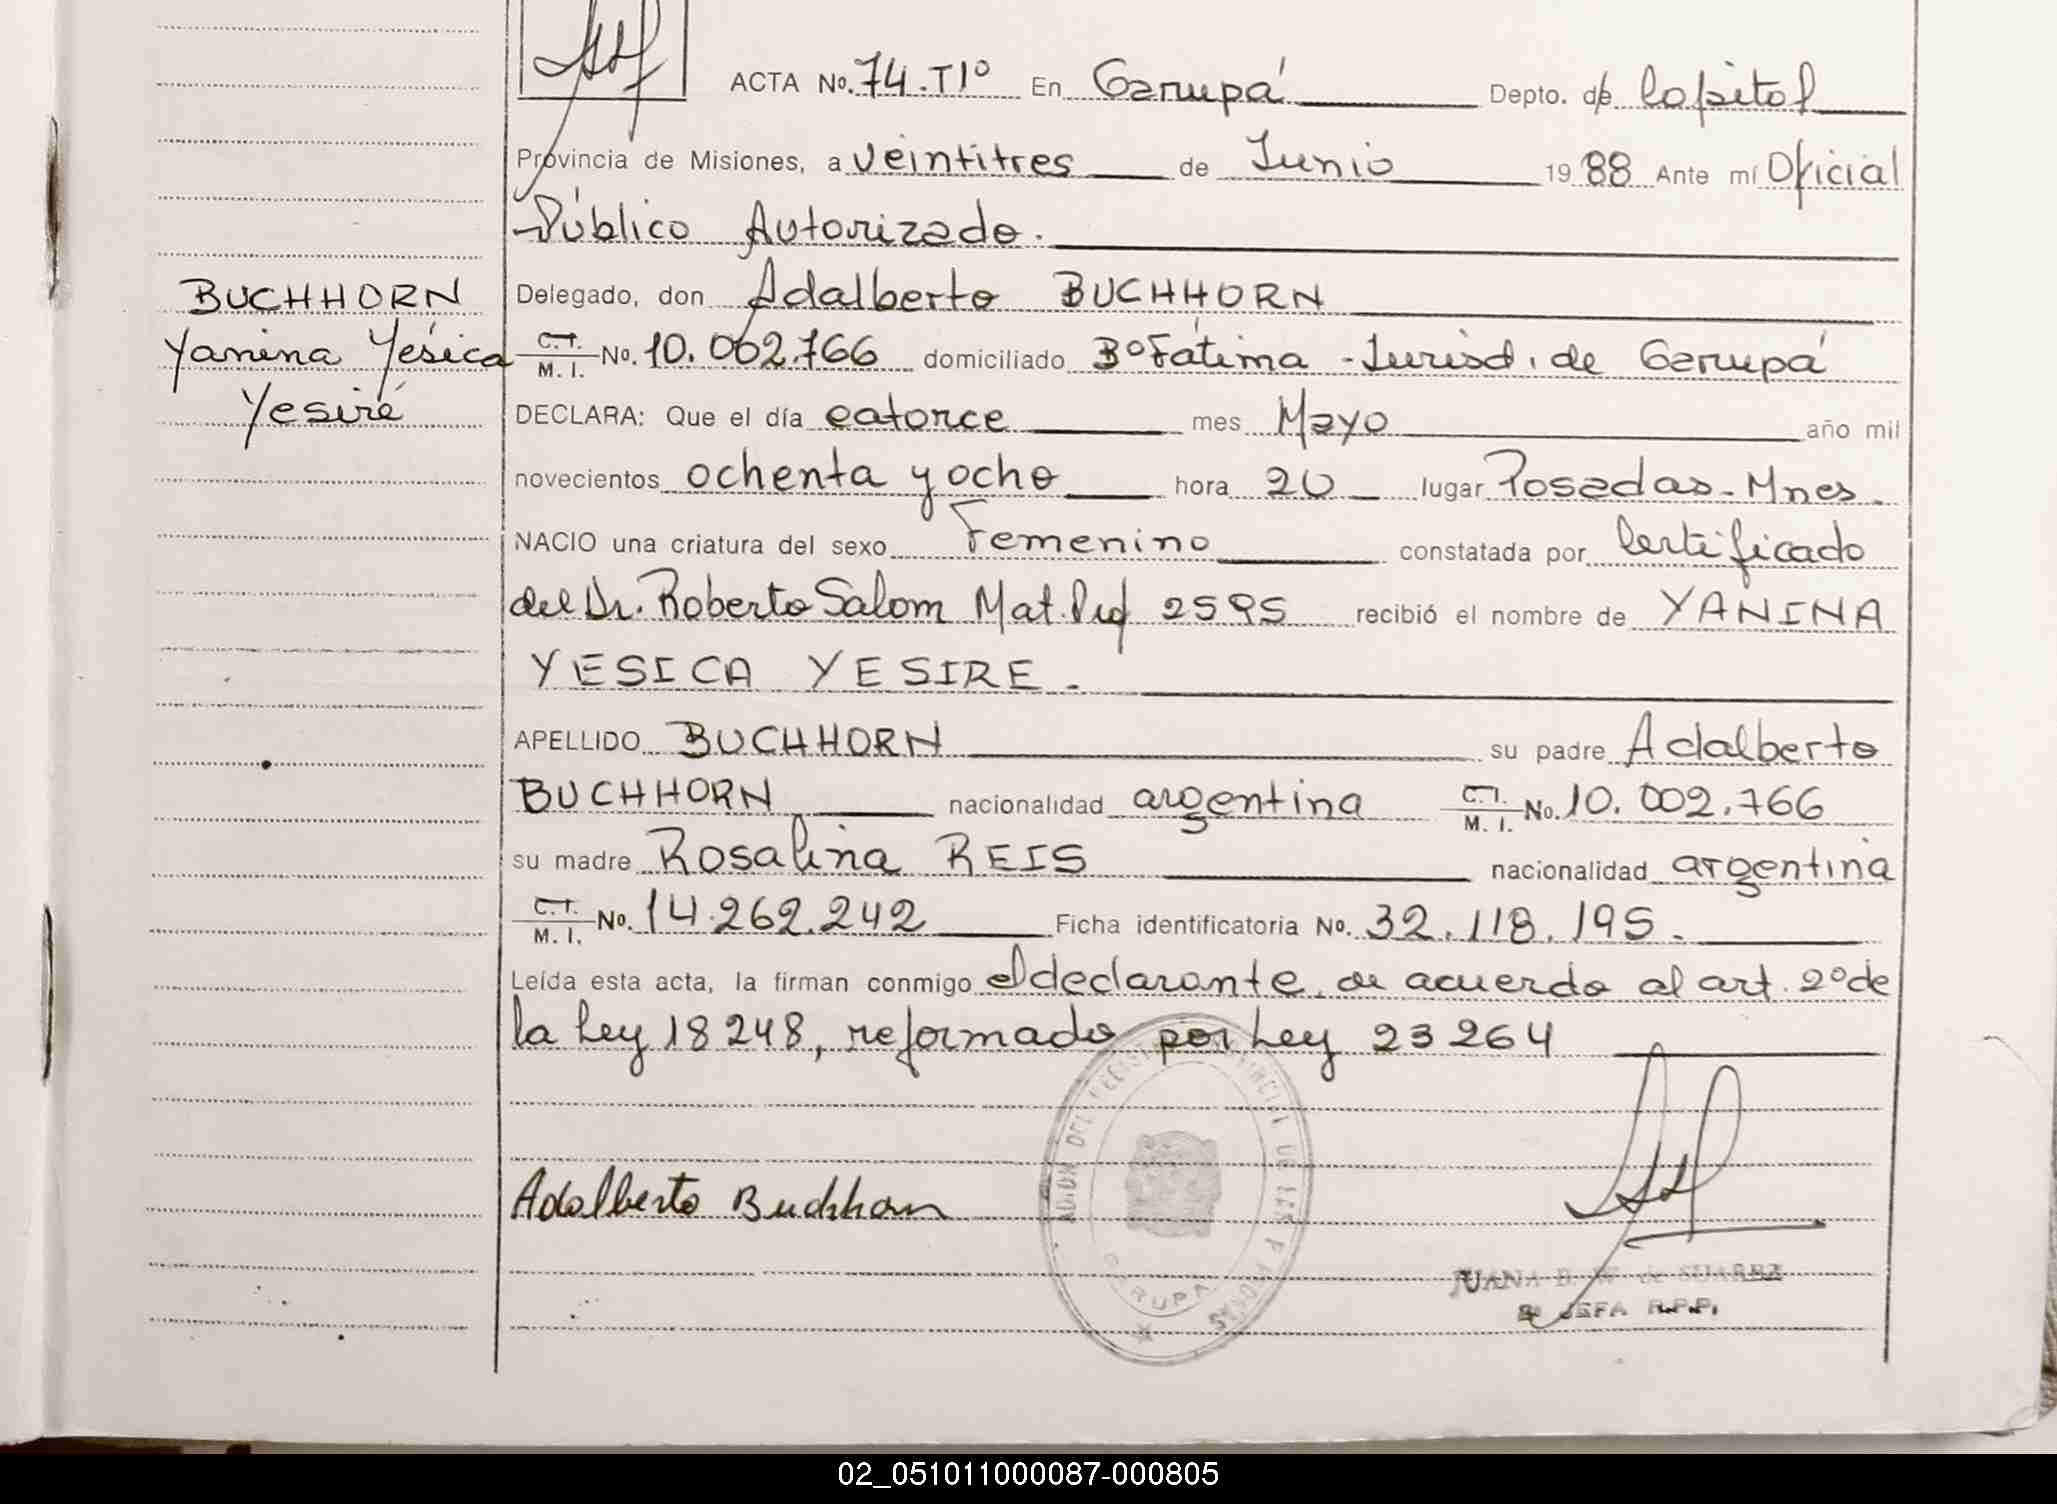 ACTA No. 74.TI° En Garupá Depto. de Capital
Provincia de Misiones, a veintitres de Junio 1988 Ante mí Oficial
Público Autorizado.
BUCHHORN
Yanina Yésica
Yesiré
Delegado, don Adalberto BUCHHORN
C.I. M. I. No. 10.002.766 domiciliado B° Fátima - Jurisd. de Garupá
DECLARA: Que el día catorce mes Mayo año mil
novecientos ochenta y ocho hora 20 lugar Posadas - Mnes.
NACIO una criatura del sexo Femenino constatada por Certificado
del Dr. Roberto Salom Mat. Prof 2595 recibió el nombre de YANINA
YESICA YESIRE.
APELLIDO BUCHHORN su padre Adalberto
BUCHHORN nacionalidad argentina C.I. M. I. No. 10.002.766
su madre Rosalina REIS nacionalidad argentina
C.I. M. I. No. 14.262.242 Ficha identificatoria No. 32.118.195.
Leída esta acta, la firman conmigo el declarante, de acuerdo al art. 2° de
la Ley 18248, reformado por Ley 23264
Adalberto Buchhorn
GARUPA
JUANA B. W. de SUAREZ
JEFA R.P.P.
02_051011000087-000805